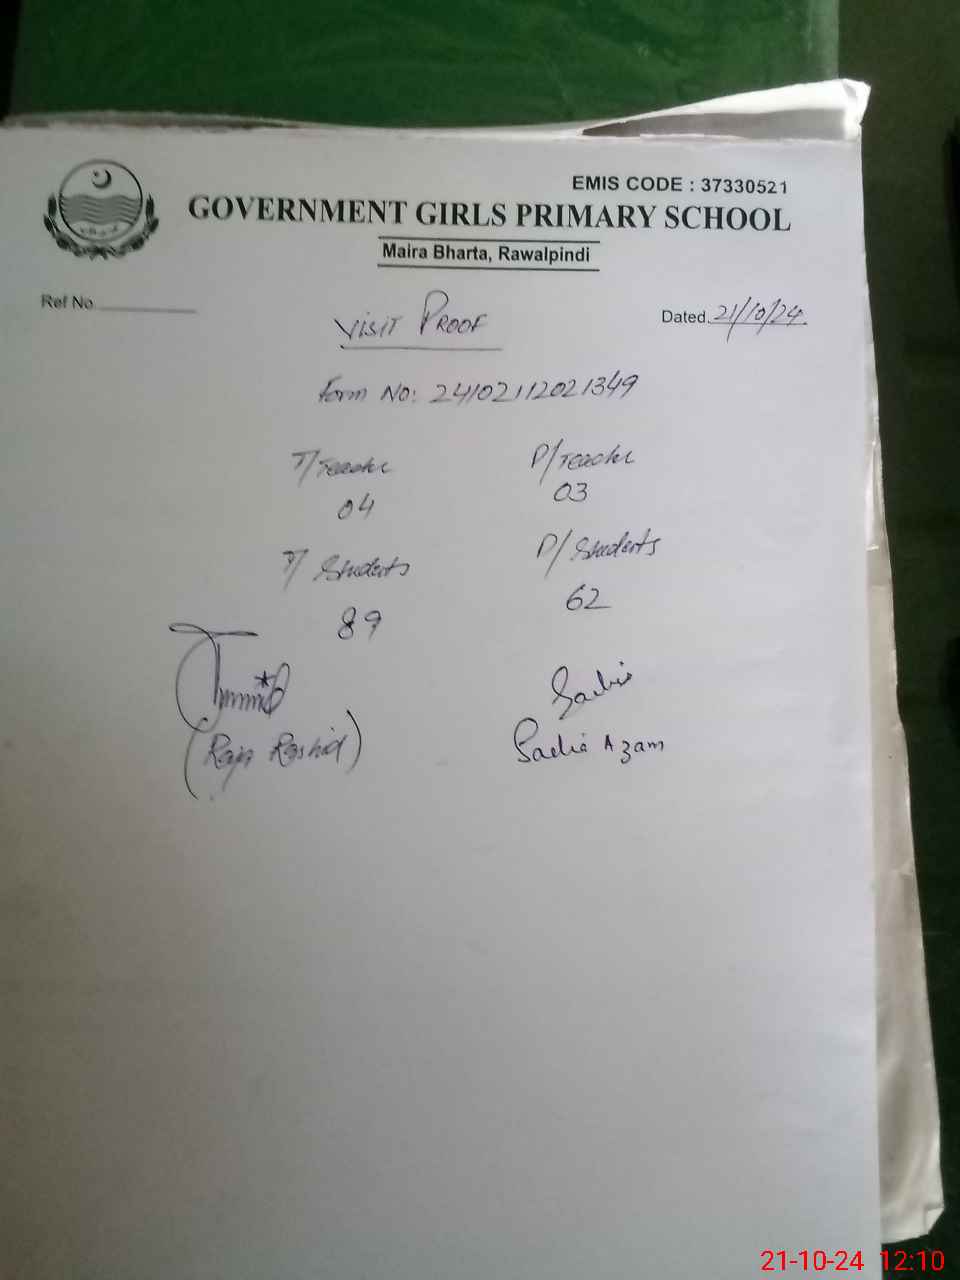 EMIS CODE : 37330521
GOVERNMENT GIRLS PRIMARY SCHOOL
Maira Bharta, Rawalpindi
Ref No.
Dated. 21/10/24
VISIT PROOF
Form No: 24102112021349
T/Teacher P/Teacher
04 03
T/ Students P/ Students
89 62
Sadia
(Raja Rashid) Sadia Azam
21-10-24 12:10